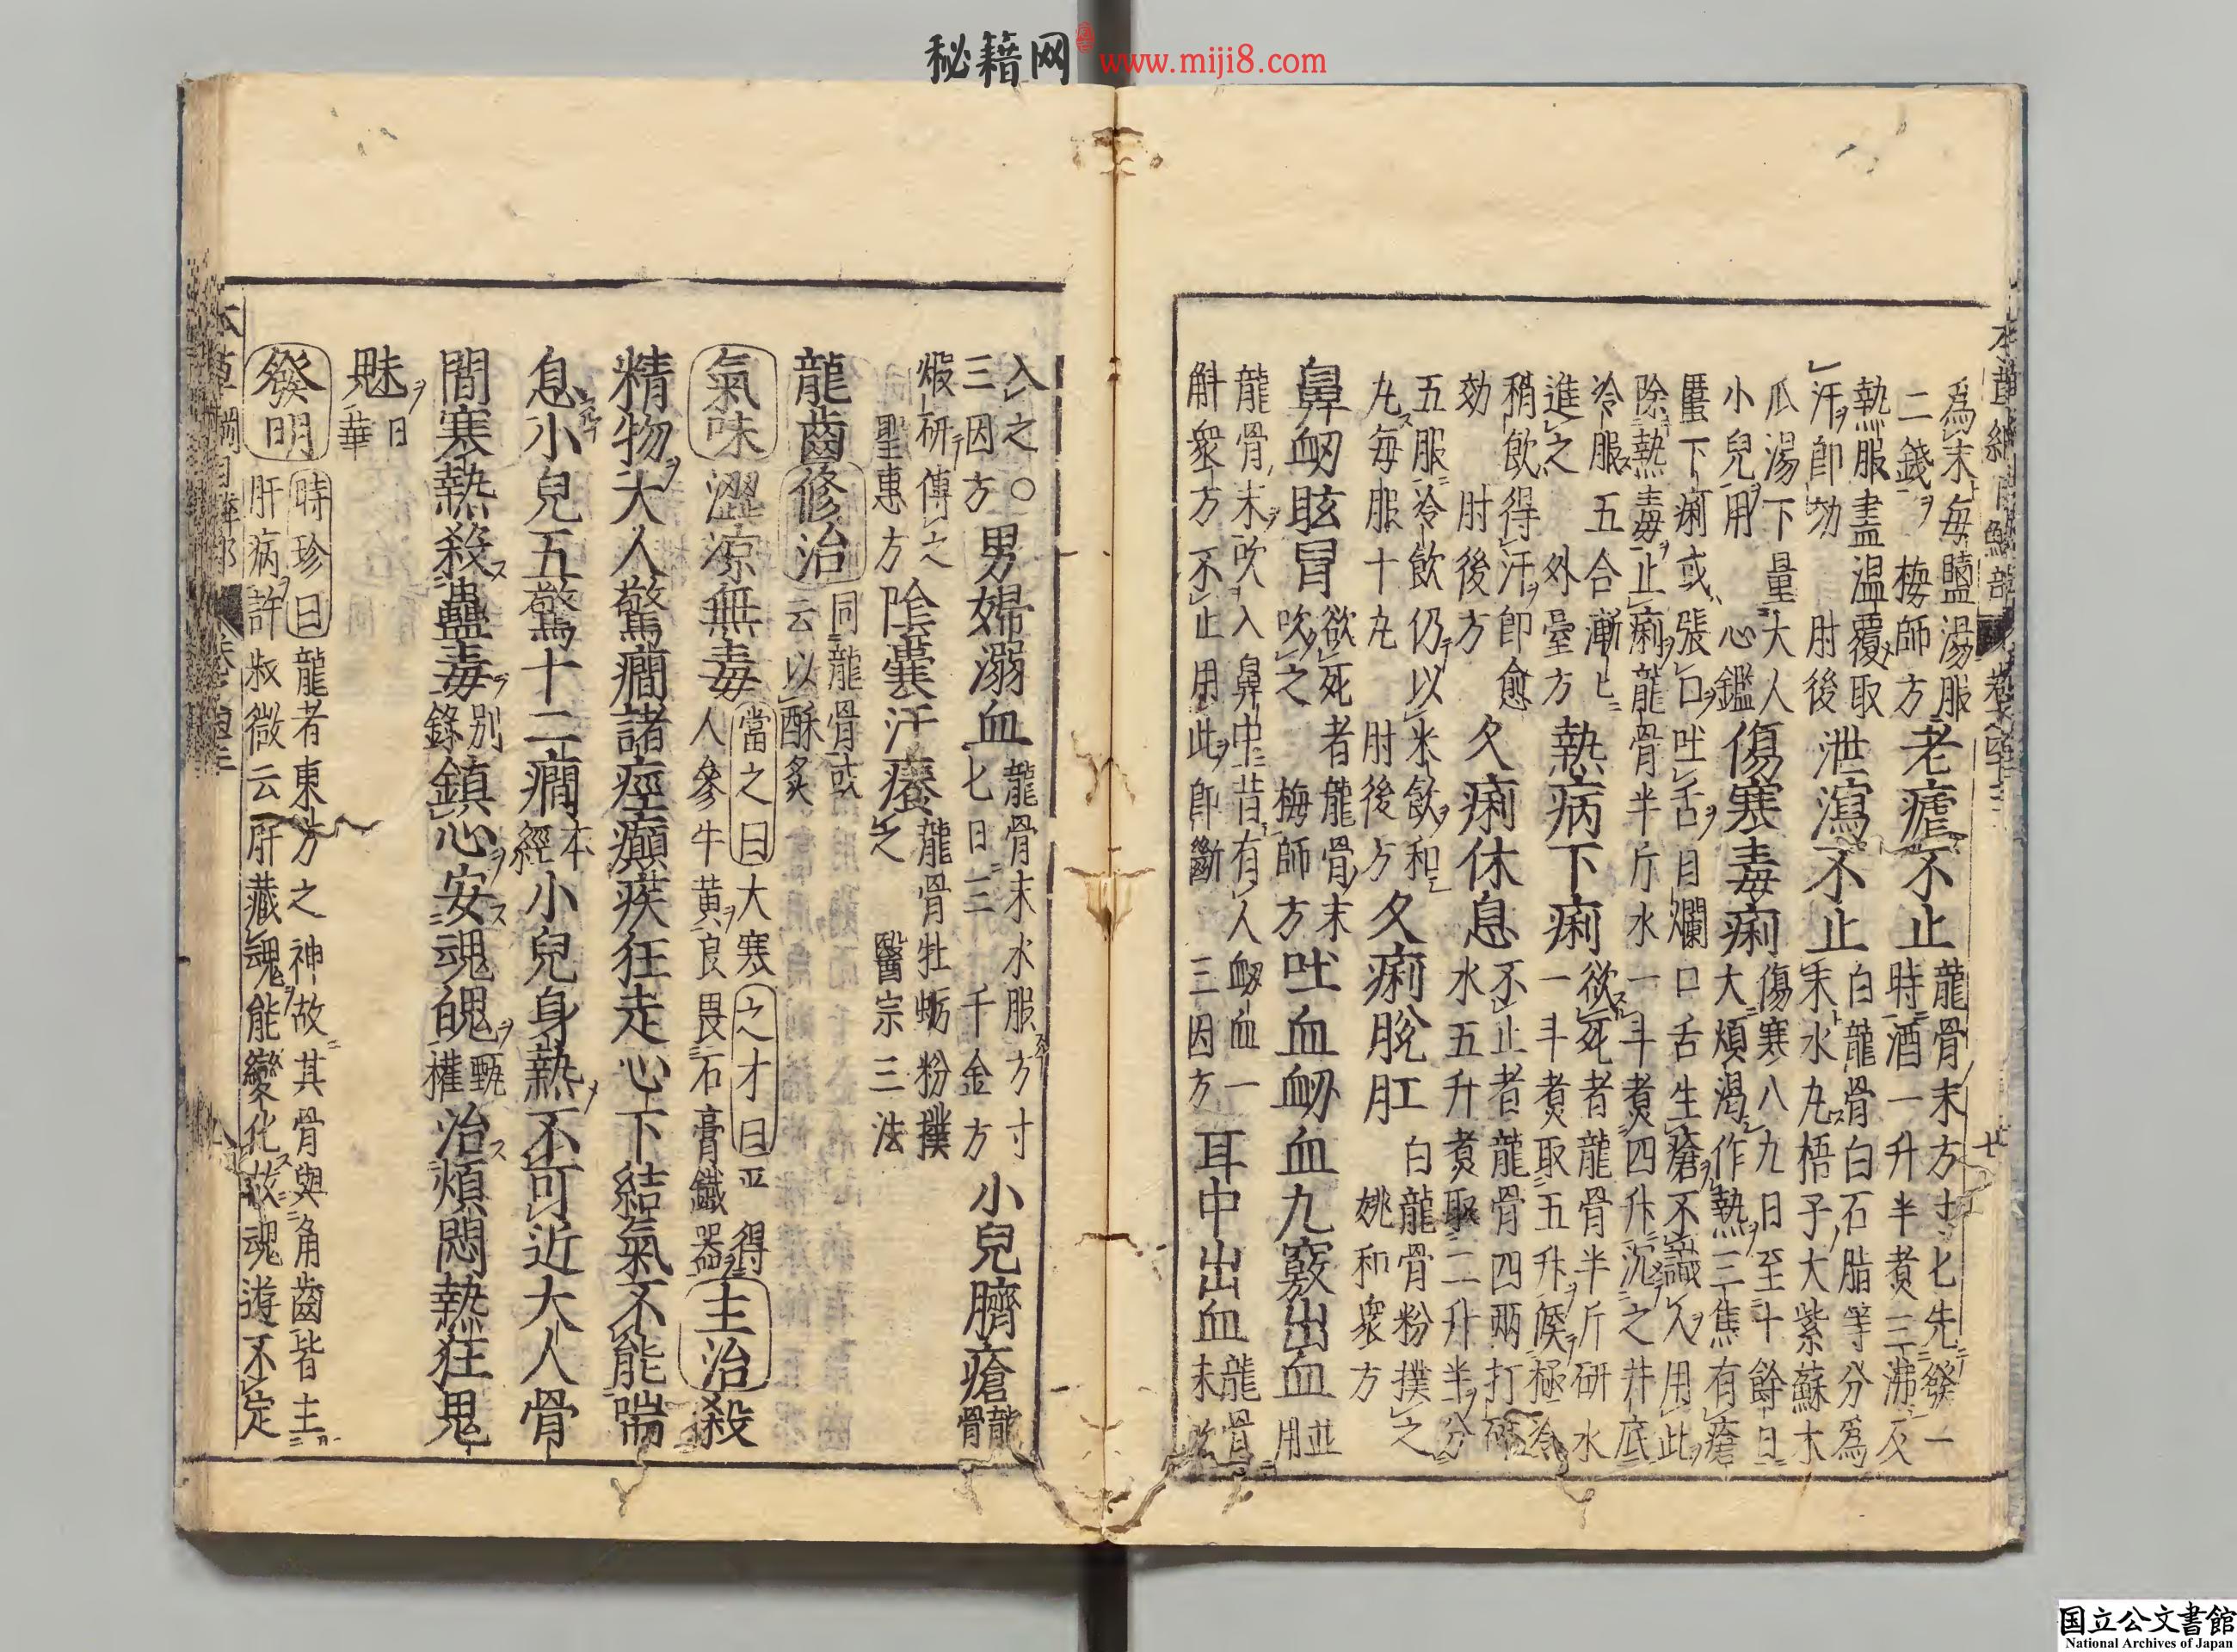 秘籍网 www.miji8.com
爲末每臨湯服二錢梅師方 老瘧不止 龍骨末方寸匕先發一時酒一升半煮三沸及
熱服盡温覆取汗即効 肘後 泄瀉不止 白龍骨白石脂等分爲末水丸梧子大紫蘇木
瓜湯下量大人小兒用 心鑑 傷寒毒痢 傷寒八九日至十餘日大煩渴作熱三焦有瘡
䘌下痢或張口吐舌目爛口舌生瘡不識人用此除熱毒止痢龍骨半斤水一斗煮四升沉之井底
冷服五合漸漸進之 外臺方 熱病下痢 欲死者龍骨半斤研水一斗煮取五升候極冷
稍飲得汗即愈効 肘後方 久痢休息 不止者龍骨四兩打碎水五升煮取二升半分
五服冷飲仍以米飲和丸每服十丸 肘後方 久痢脫肛 白龍骨粉撲之 姚和衆方
鼻衂眩冒 欲死者龍骨末吹之 梅師方 吐血衂血九竅出血 並用
龍骨末吹入鼻中昔有人衂血一斛衆方不止用此即斷 三因方 耳中出血 龍骨末吹
入之 三因方 ○ 男婦溺血 龍骨末水服方寸匕日三 千金方 小兒臍瘡 龍骨
煅研傅之 聖惠方 陰囊汗癢 龍骨牡蛎粉撲之 醫宗三法
龍齒 修治 同龍骨或云以酥炙
氣味 澀凉無毒 當之曰大寒之才曰平得人參牛黄良畏石膏鐵器 主治 殺
精物大人驚癎諸痙癲疾狂走心下結氣不能喘
息小兒五驚十二癎 本經 小兒身熱不可近大人骨
間寒熱殺蠱毒 别録 鎮心安魂魄 甄權 治煩悶熱狂鬼
魅 日華
發明 時珍曰龍者東方之神故其骨與角齒皆主
肝病許叔微云肝藏魂能變化故魂遊不定
国立公文書館
National Archives of Japan